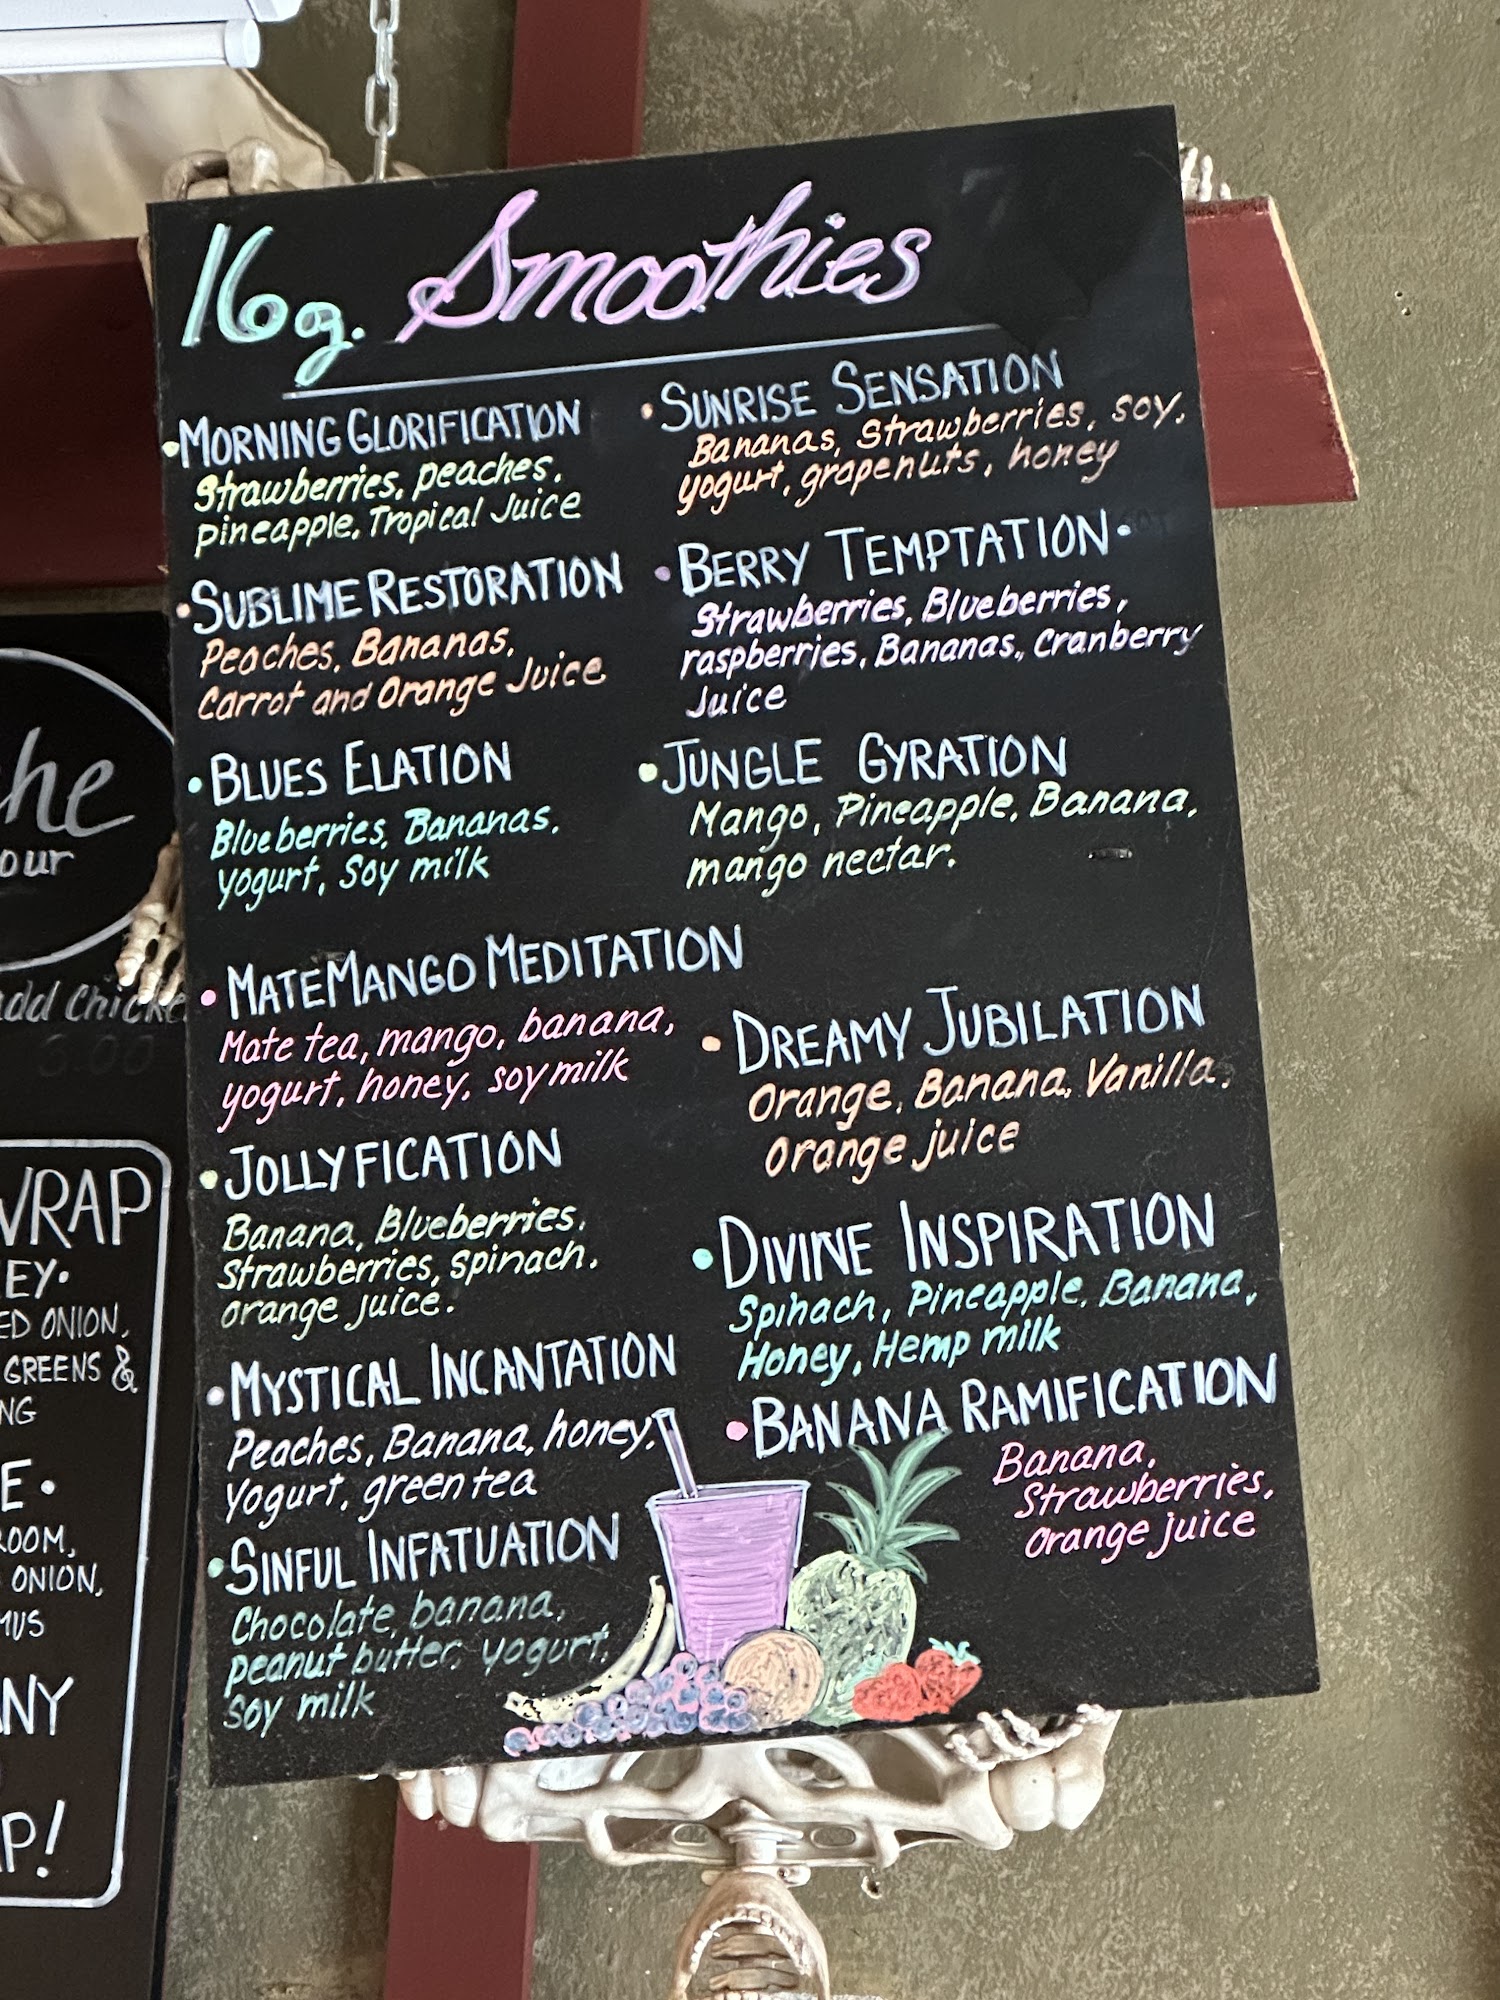 16 oz. Smoothies
•MORNING GLORIFICATION
Strawberries, peaches,
pineapple, Tropical Juice
•SUBLIME RESTORATION
Peaches, Bananas,
Carrot and Orange Juice
•BLUES ELATION
Blueberries, Bananas,
yogurt, Soy milk
•MATEMANGO MEDITATION
Mate tea, mango, banana,
yogurt, honey, soy milk
•JOLLYFICATION
Banana, Blueberries,
Strawberries, Spinach,
orange juice.
•MYSTICAL INCANTATION
Peaches, Banana, honey,
Yogurt, green tea
•SINFUL INFATUATION
Chocolate, banana,
peanut butter, yogurt,
Soy milk
•SUNRISE SENSATION
Bananas, Strawberries, soy,
yogurt, grapenuts, honey
•BERRY TEMPTATION•
Strawberries, Blueberries,
raspberries, Bananas, Cranberry
Juice
•JUNGLE GYRATION
Mango, Pineapple, Banana,
mango nectar.
•DREAMY JUBILATION
Orange, Banana, Vanilla,
Orange juice
•DIVINE INSPIRATION
Spinach, Pineapple, Banana,
Honey, Hemp milk
•BANANA RAMIFICATION
Banana,
Strawberries,
Orange juice
he
our
add Chicke
6.00
WRAP
EY•
ED ONION,
GREENS &
NG
E•
ROOM,
ONION,
MUS
NY
P!